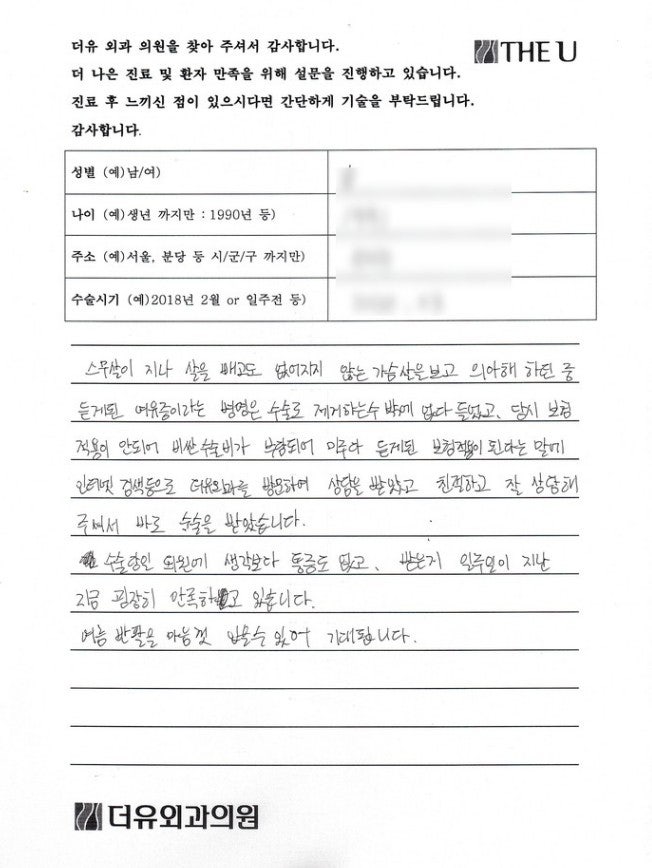 더유 외과 의원을 찾아 주셔서 감사합니다.
THE U
더 나은 진료 및 환자 만족을 위해 설문을 진행하고 있습니다.
진료 후 느끼신 점이 있으시다면 간단하게 기술을 부탁드립니다.
감사합니다.
성별 (예)남/여)
나이 (예)생년 까지만 : 1990년 등)
주소 (예)서울, 분당 등 시/군/구 까지만)
수술시기 (예)2018년 2월 or 일주전 등)
스무살이 지나 살을 빼고도 없어지지 않는 가슴살을 보고 의아해 하던 중
듣게된 여유증이라는 병명은 수술로 제거하는수 밖에 없다 들었고, 당시 보험
적용이 안되어 비싼수술비가 부담되어 미루다 듣게된 보험적용이 된다는 말에
인터넷 검색등으로 더유외과를 방문하여 상담을 받았고 친절하고 잘 상담해
주셔서 바로 수술을 받았습니다.
수술당일 의외에 생각보다 통증도 없고, 받은지 일주일이 지난
지금 굉장히 만족하고 있습니다.
여름 반팔을 마음껏 입을수 있어 기대됩니다.
더유외과의원